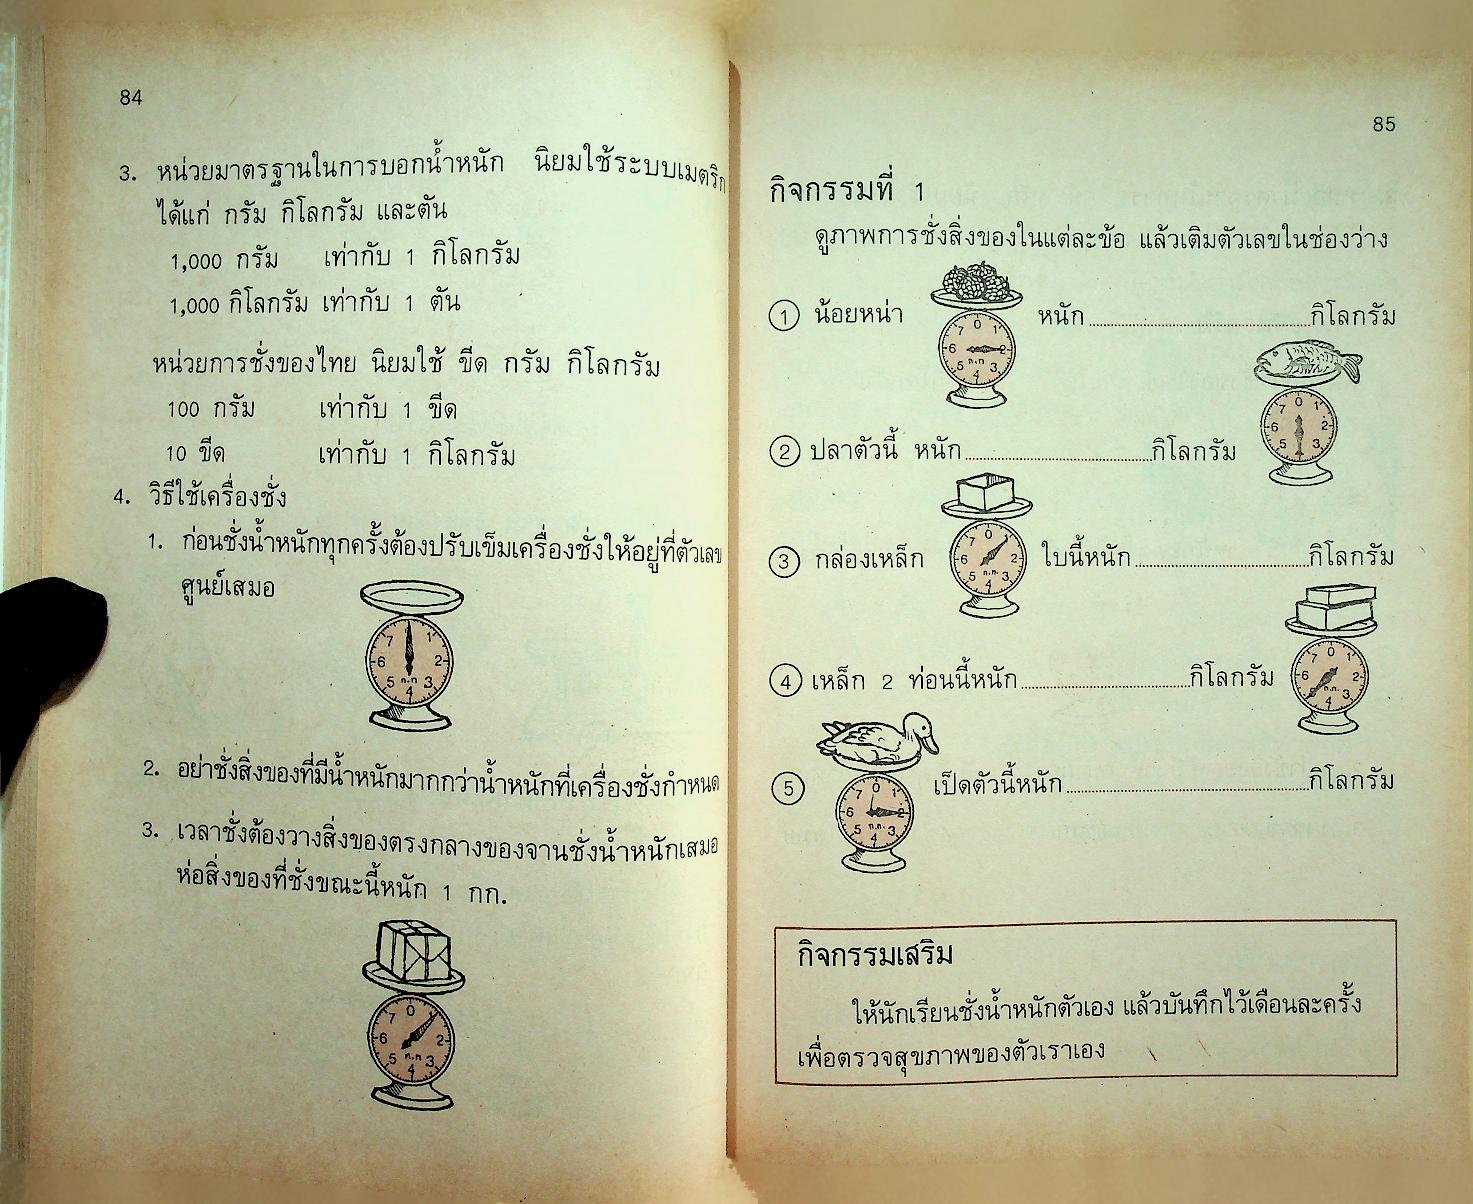 84
3. หน่วยมาตรฐานในการบอกน้ำหนัก นิยมใช้ระบบเมตริก
ได้แก่ กรัม กิโลกรัม และตัน
1,000 กรัม เท่ากับ 1 กิโลกรัม
1,000 กิโลกรัม เท่ากับ 1 ตัน
หน่วยการชั่งของไทย นิยมใช้ ขีด กรัม กิโลกรัม
100 กรัม เท่ากับ 1 ขีด
10 ขีด เท่ากับ 1 กิโลกรัม
4. วิธีใช้เครื่องชั่ง
1. ก่อนชั่งน้ำหนักทุกครั้งต้องปรับเข็มเครื่องชั่งให้อยู่ที่ตัวเลข
ศูนย์เสมอ
7 1
6 2
5 ก.ก 3
4
2. อย่าชั่งสิ่งของที่มีน้ำหนักมากกว่าน้ำหนักที่เครื่องชั่งกำหนด
3. เวลาชั่งต้องวางสิ่งของตรงกลางของจานชั่งน้ำหนักเสมอ
ห่อสิ่งของที่ชั่งขณะนี้หนัก 1 กก.
7 0
6 2
5 ก.ก 3
4
85
กิจกรรมที่ 1
ดูภาพการชั่งสิ่งของในแต่ละข้อ แล้วเติมตัวเลขในช่องว่าง
1 น้อยหน่า หนัก.......................................กิโลกรัม
7 0 1
6 2
5 ก.ก 3
4
2 ปลาตัวนี้ หนัก.......................................กิโลกรัม
7 0 1
6 2
5 3
3 กล่องเหล็ก ใบนี้หนัก.......................................กิโลกรัม
7 0
6 2
5 ก.ก. 3
4
4 เหล็ก 2 ท่อนนี้หนัก.......................................กิโลกรัม
7 0 1
6 2
ก.ก. 3
4
5 เป็ดตัวนี้หนัก.......................................กิโลกรัม
7 0 1
6
5 ก.ก. 3
4
กิจกรรมเสริม
ให้นักเรียนชั่งน้ำหนักตัวเอง แล้วบันทึกไว้เดือนละครั้ง
เพื่อตรวจสุขภาพของตัวเราเอง